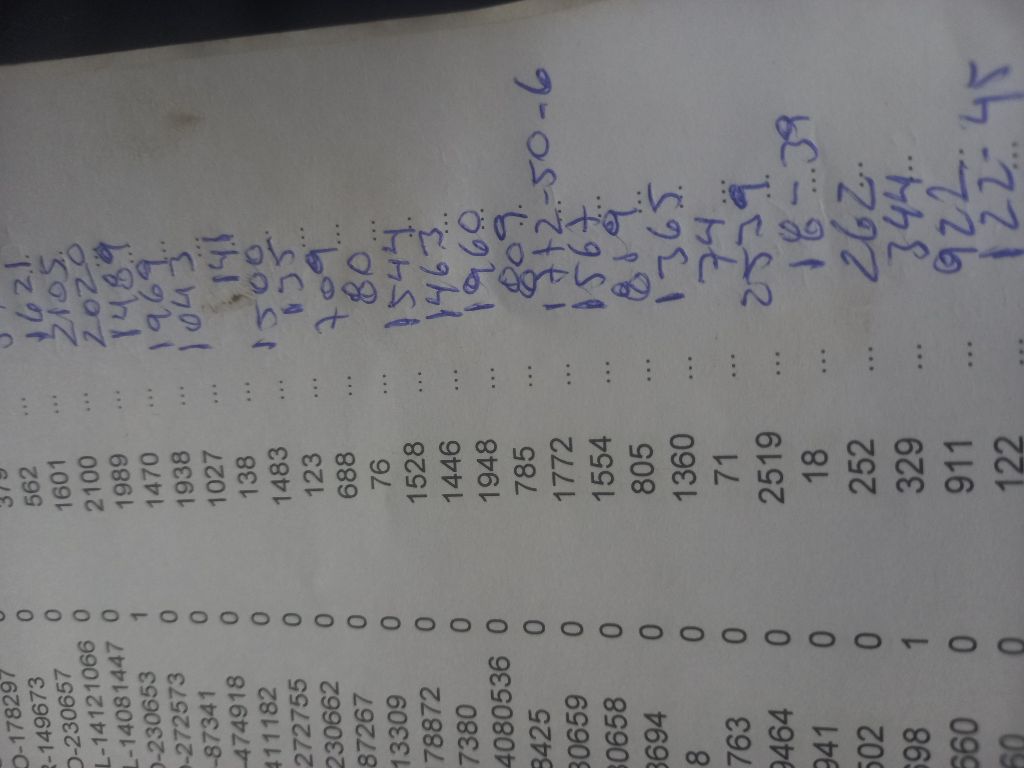 O-178297 0
R-149673 0 379
O-230657 0 562 ...
L-14121066 0 1601 ... 1621...
L-14081447 0 2100 ... 2105...
O-230653 1 1989 ... 2020...
O-272573 0 1470 ... 1489...
-87341 0 1938 ... 1969...
-474918 0 1027 ... 1043...
411182 0 138 ... 141...
272755 0 1483 ... 1500...
230662 0 123 ... 135...
87267 0 688 ... 709...
13309 0 76 ... 80...
78872 0 1528 ... 1544...
7380 0 1446 ... 1463...
4080536 0 1948 ... 1960...
8425 0 785 ... 809...
30659 0 1772 ... 1772-50-6
30658 0 1554 ... 1567...
8694 0 805 ... 819...
8 0 1360 ... 1365...
763 0 71 ... 74...
9464 0 2519 ... 2539...
941 0 18 ... 18-39
502 0 252 ... 262...
698 1 329 ... 344...
660 0 911 ... 922...
60 0 122 ... 122-45